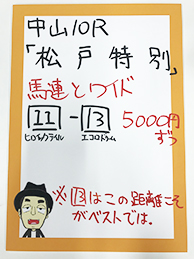 中山10R
「松戸特別」
馬連とワイド
11-13 5000円ずつ
ヒロノクライル エコロドゥム
※13はこの距離こそ
がベストでは。